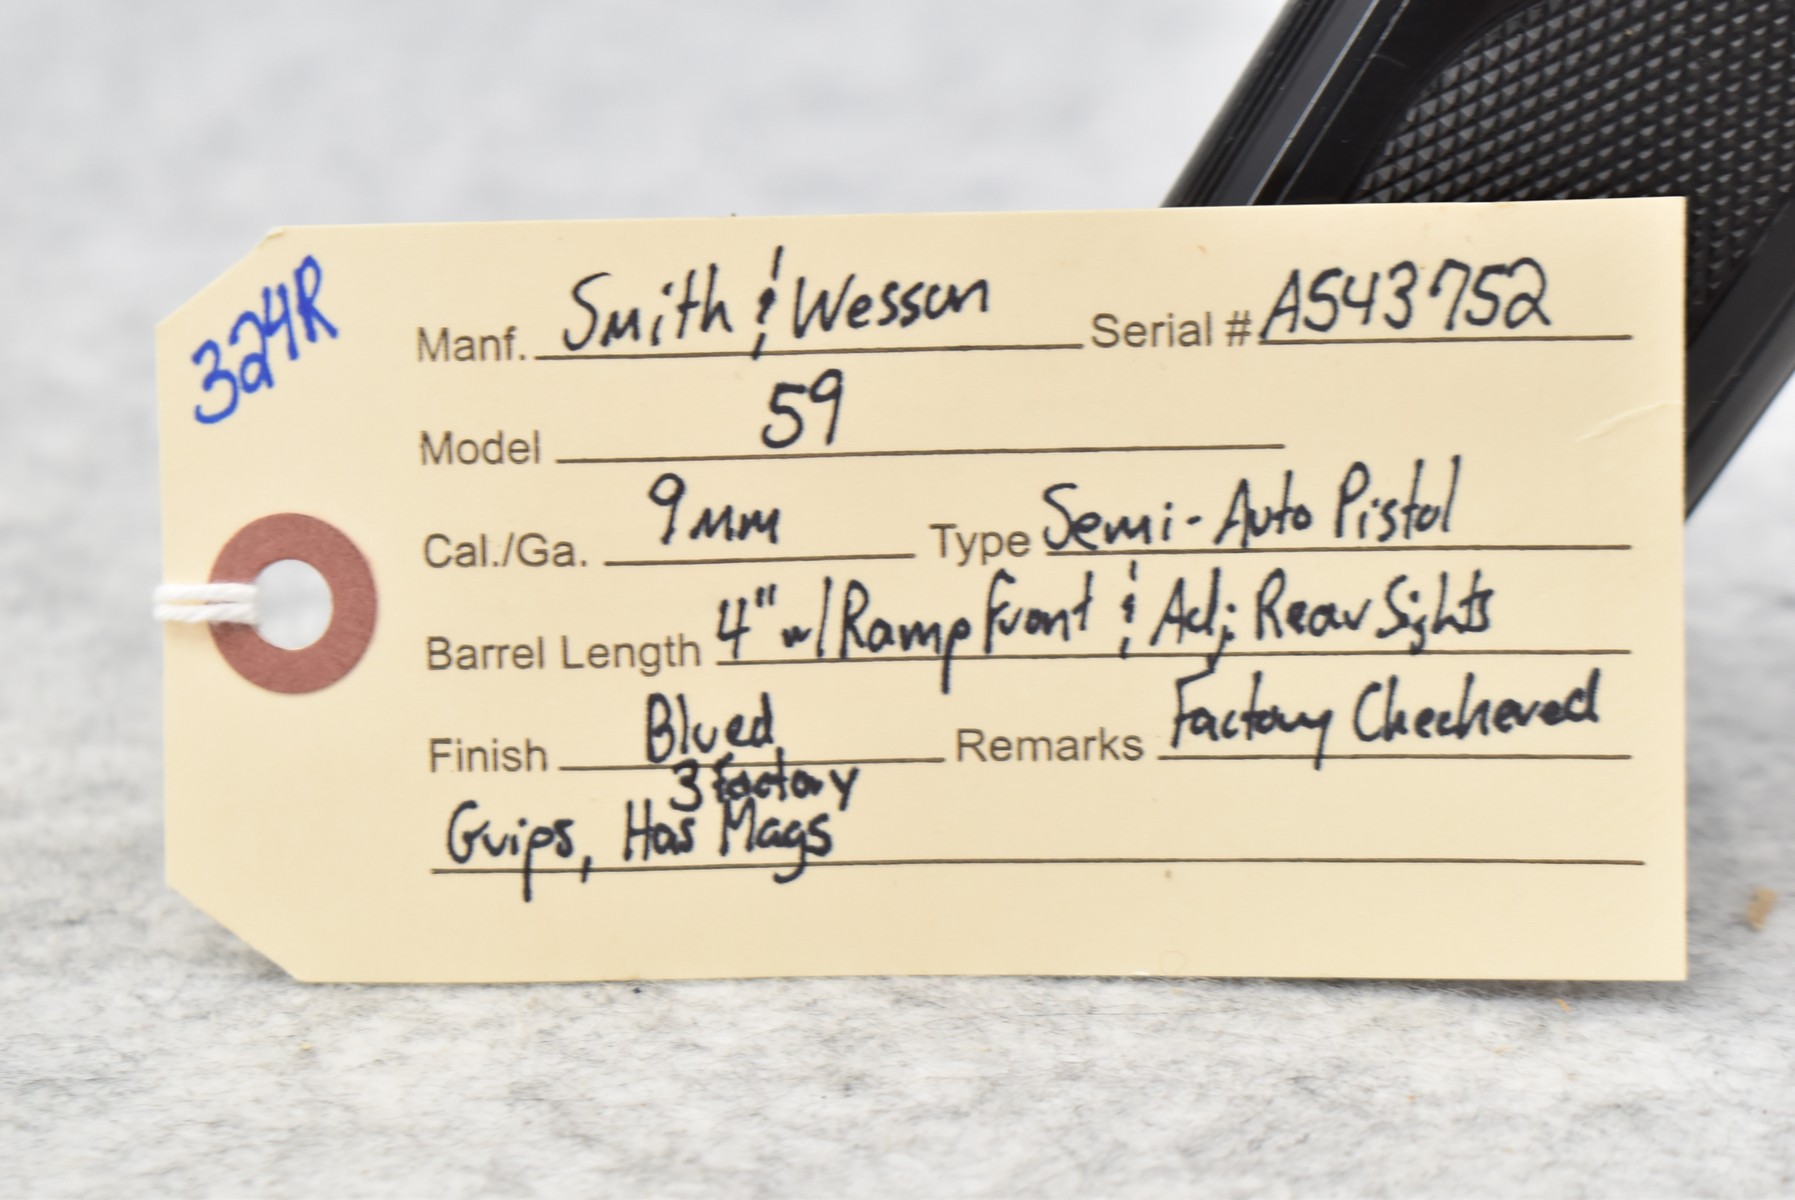 324R
Manf. Smith & Wesson Serial # A543752
Model 59
Cal./Ga. 9mm Type Semi-Auto Pistol
Barrel Length 4" w/ Ramp Front & Adj. Rear Sights
Finish Blued Remarks Factory Checkered
3 Factory
Grips, Has Mags